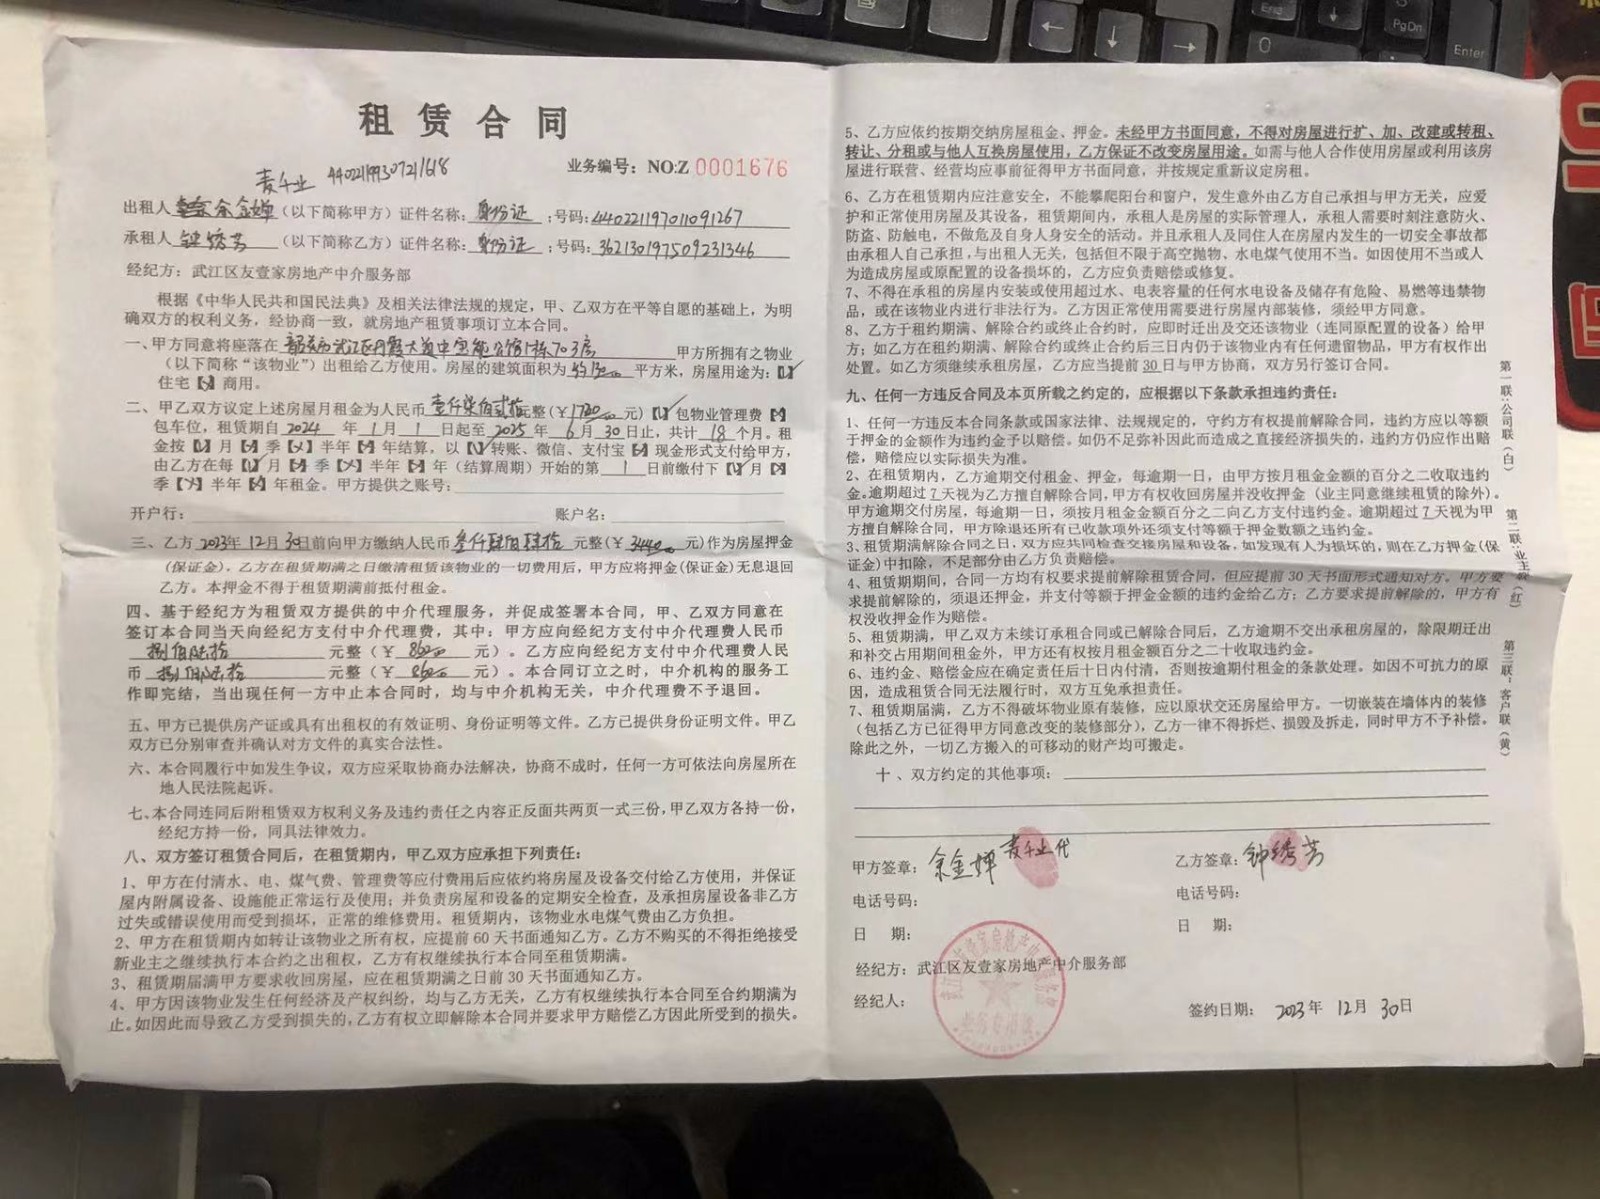 租赁合同
麦千业 440221199307211618
业务编号：NO:Z 0001676
出租人 余金婵（以下简称甲方）证件名称：身份证；号码：440221197011091267
承租人 钟绣芳（以下简称乙方）证件名称：身份证；号码：362130197509231346
经纪方：武江区友壹家房地产中介服务部
根据《中华人民共和国民法典》及相关法律法规的规定，甲、乙双方在平等自愿的基础上，为明
确双方的权利义务，经协商一致，就房地产租赁事项订立本合同。
一、甲方同意将座落在 韶关市武江区丹霞大道中 公馆1栋703房 甲方所拥有之物业
（以下简称“该物业”）出租给乙方使用。房屋的建筑面积为 约130 平方米，房屋用途为：【✓】
住宅【✗】商用。
二、甲乙双方议定上述房屋月租金为人民币 壹仟柒佰贰拾元整（￥1720元）【✓】包物业管理费【✗】
包车位，租赁期自 2024 年 1 月 1 日起至 2025 年 6 月 30 日止，共计 18 个月。租
金按【✓】月【✗】季【✗】半年【✗】年结算，以【✓】转账、微信、支付宝【✗】现金形式支付给甲方，
由乙方在每【✓】月【✗】季【✗】半年【✗】年（结算周期）开始的第 1 日前缴付下【✓】月【✗】
季【✗】半年【✗】年租金。甲方提供之账号：
开户行： 账户名：
三、乙方 2023年 12月 30日前向甲方缴纳人民币 叁仟肆佰肆拾 元整（￥3440元）作为房屋押金
（保证金）。乙方在租赁期满之日缴清租赁该物业的一切费用后，甲方应将押金(保证金)无息退回
乙方。本押金不得于租赁期满前抵付租金。
四、基于经纪方为租赁双方提供的中介代理服务，并促成签署本合同，甲、乙双方同意在
签订本合同当天向经纪方支付中介代理费，其中：甲方应向经纪方支付中介代理费人民币
捌佰陆拾 元整（￥ 860 元）。乙方应向经纪方支付中介代理费人民
币 捌佰陆拾 元整（￥ 860 元）。本合同订立之时，中介机构的服务工
作即完结，当出现任何一方中止本合同时，均与中介机构无关，中介代理费不予退回。
五、甲方已提供房产证或具有出租权的有效证明、身份证明等文件。乙方已提供身份证明文件。甲乙
双方已分别审查并确认对方文件的真实合法性。
六、本合同履行中如发生争议，双方应采取协商办法解决，协商不成时，任何一方可依法向房屋所在
地人民法院起诉。
七、本合同连同后附租赁双方权利义务及违约责任之内容正反面共两页一式三份，甲乙双方各持一份，
经纪方持一份，同具法律效力。
八、双方签订租赁合同后，在租赁期内，甲乙双方应承担下列责任：
1、甲方在付清水、电、煤气费、管理费等应付费用后应依约将房屋及设备交付给乙方使用，并保证
屋内附属设备、设施能正常运行及使用；并负责房屋和设备的定期安全检查，及承担房屋设备非乙方
过失或错误使用而受到损坏，正常的维修费用。租赁期内，该物业水电煤气费由乙方负担。
2、甲方在租赁期内如转让该物业之所有权，应提前 60 天书面通知乙方。乙方不购买的不得拒绝接受
新业主之继续执行本合约之出租权，乙方有权继续执行本合同至租赁期满。
3、租赁期届满甲方要求收回房屋，应在租赁期满之日前 30 天书面通知乙方。
4、甲方因该物业发生任何经济及产权纠纷，均与乙方无关，乙方有权继续执行本合同至合约期满为
止。如因此而导致乙方受到损失的，乙方有权立即解除本合同并要求甲方赔偿乙方因此所受到的损失。
5、乙方应依约按期交纳房屋租金、押金。未经甲方书面同意，不得对房屋进行扩、加、改建或转租、
转让、分租或与他人互换房屋使用，乙方保证不改变房屋用途。如需与他人合作使用房屋或利用该房
屋进行联营、经营均应事前征得甲方书面同意，并按规定重新议定房租。
6、乙方在租赁期内应注意安全，不能攀爬阳台和窗户，发生意外由乙方自己承担与甲方无关，应爱
护和正常使用房屋及其设备，租赁期间内，承租人是房屋的实际管理人，承租人需要时刻注意防火、
防盗、防触电，不做危及自身人身安全的活动。并且承租人及同住人在房屋内发生的一切安全事故都
由承租人自己承担，与出租人无关，包括但不限于高空抛物、水电煤气使用不当。如因使用不当或人
为造成房屋或原配置的设备损坏的，乙方应负责赔偿或修复。
7、不得在承租的房屋内安装或使用超过水、电表容量的任何水电设备及储存有危险、易燃等违禁物
品，或在该物业内进行非法行为。乙方因正常使用需要进行房屋内部装修，须经甲方同意。
8、乙方于租约期满、解除合约或终止合约时，应即时迁出及交还该物业（连同原配置的设备）给甲
方；如乙方在租约期满、解除合约或终止合约后三日内仍于该物业内有任何遗留物品，甲方有权作出
处置。如乙方须继续承租房屋，乙方应当提前 30 日与甲方协商，双方另行签订合同。
九、任何一方违反合同及本页所载之约定的，应根据以下条款承担违约责任：
1、任何一方违反本合同条款或国家法律、法规规定的，守约方有权提前解除合同，违约方应以等额
于押金的金额作为违约金予以赔偿。如仍不足弥补因此而造成之直接经济损失的，违约方仍应作出赔
偿，赔偿应以实际损失为准。
2、在租赁期内，乙方逾期交付租金、押金，每逾期一日，由甲方按月租金金额的百分之二收取违约
金。逾期超过 7 天视为乙方擅自解除合同，甲方有权收回房屋并没收押金（业主同意继续租赁的除外）。
甲方逾期交付房屋，每逾期一日，须按月租金金额百分之二向乙方支付违约金。逾期超过 7 天视为甲
方擅自解除合同，甲方除退还所有已收款项外还须支付等额于押金数额之违约金。
3、租赁期满解除合同之日，双方应共同检查交接房屋和设备，如发现有人为损坏的，则在乙方押金(保
证金)中扣除，不足部分由乙方负责赔偿。
4、租赁期期间，合同一方均有权要求提前解除租赁合同，但应提前 30 天书面形式通知对方。甲方要
求提前解除的，须退还押金，并支付等额于押金金额的违约金给乙方；乙方要求提前解除的，甲方有
权没收押金作为赔偿。
5、租赁期满，甲乙双方未续订承租合同或已解除合同后，乙方逾期不交出承租房屋的，除限期迁出
和补交占用期间租金外，甲方还有权按月租金额百分之二十收取违约金。
6、违约金、赔偿金应在确定责任后十日内付清，否则按逾期付租金的条款处理。如因不可抗力的原
因，造成租赁合同无法履行时，双方互免承担责任。
7、租赁期届满，乙方不得破坏物业原有装修，应以原状交还房屋给甲方。一切嵌装在墙体内的装修
（包括乙方已征得甲方同意改变的装修部分），乙方一律不得拆烂、损毁及拆走，同时甲方不予补偿。
除此之外，一切乙方搬入的可移动的财产均可搬走。
十、双方约定的其他事项：
甲方签章：余金婵 麦千业代
乙方签章：钟绣芳
电话号码：
电话号码：
日 期：
日 期：
经纪方：武江区友壹家房地产中介服务部
经纪人：
签约日期： 2023年 12月 30日
第一联：公司联（白）
第二联：业主联（红）
第三联：客户联（黄）
End
PgDn
Enter
0
←
↓
→